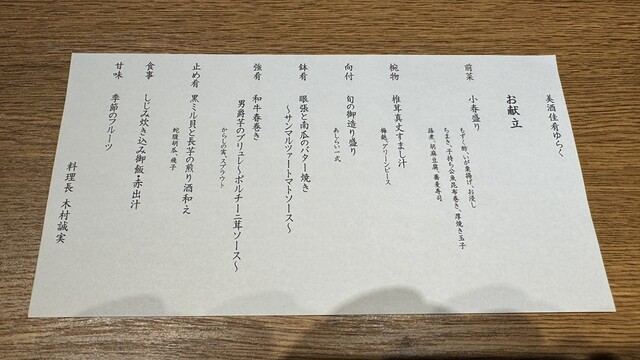 美酒佳肴ゆらく
お献立
前菜 小春盛り
もずく酢、いが栗揚げ、お浸し
ちまき、子持ち公魚昆布巻き、厚焼き玉子
胡麻豆腐、蕎麦寿司
椀物 椎茸真丈すまし汁
梅麩、グリーンピース
向付 旬の御造り盛り
あしらい一式
鉢肴 眼張と南瓜のバター焼き
～サンマルツァートマトソース～
強肴 和牛春巻き
男爵芋のブリュレ～ポルチーニ茸ソース～
からしの実、スプラウト
止め肴 黒ミル貝と長芋の煎り酒和え
蛇腹胡瓜、茂子
食事 しじみ炊き込み御飯・赤出汁
甘味 季節のフルーツ
料理長 木村誠実